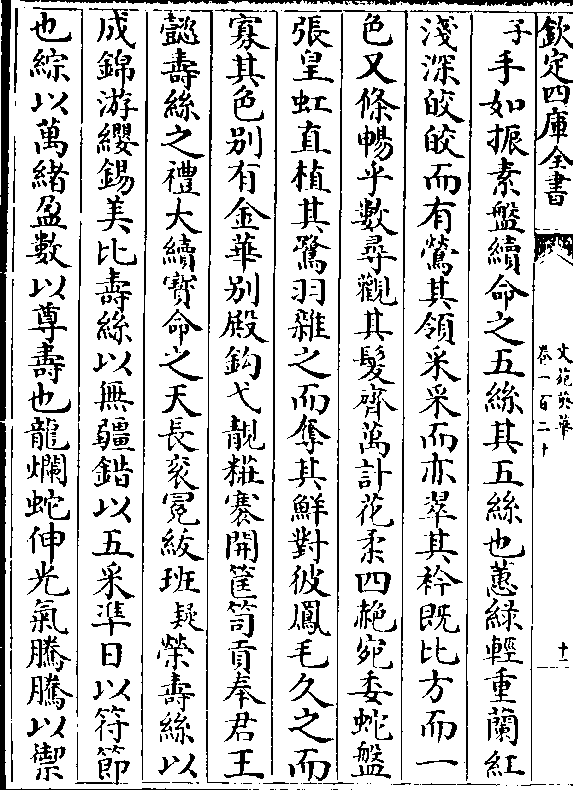 欽定四庫全書
文苑英華
卷一百二十
十一
子手如振素盤續命之五絲其五絲也蔥綠輕重蘭紅
淺深皎皎而有鶯其領采采而亦翠其衿既比方而一
色又條暢乎數尋觀其髮齊萬計花柔四艴宛委蛇盤
張皇虹直植其鷺羽雜之而奪其鮮對彼鳳毛久之而
寡其色别有金華别殿鈎弋靚糚褰開筐笥貢奉君王
懿壽絲之禮大續寳命之天長衮冕紱班疑榮壽絲以
成錦游纓錫美比壽絲以無疆錯以五采凖日以符節
也綜以萬緒盈數以尊壽也龍爛蛇伸光氣騰騰以禦